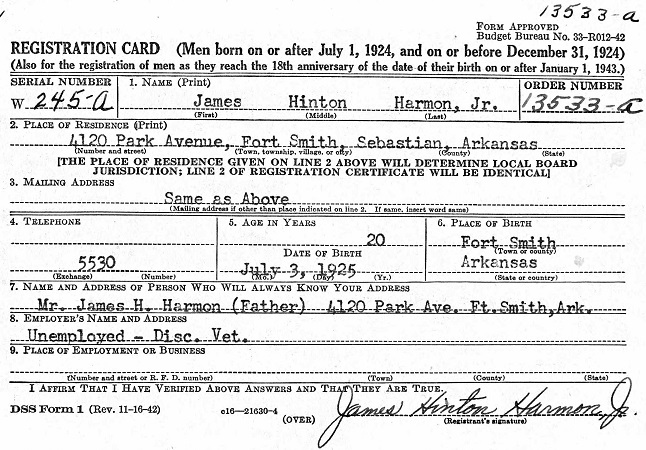 13533-a
FORM APPROVED
Budget Bureau No. 33-R012-42
REGISTRATION CARD (Men born on or after July 1, 1924, and on or before December 31, 1924)
(Also for the registration of men as they reach the 18th anniversary of the date of their birth on or after January 1, 1943.)
SERIAL NUMBER 1. NAME (Print) ORDER NUMBER
W 245-a James Hinton Harmon, Jr. 13533-a
(First) (Middle) (Last)
2. PLACE OF RESIDENCE (Print)
4120 Park Avenue, Fort Smith, Sebastian, Arkansas
(Number and street) (Town, township, village, or city) (County) (State)
[THE PLACE OF RESIDENCE GIVEN ON LINE 2 ABOVE WILL DETERMINE LOCAL BOARD
JURISDICTION; LINE 2 OF REGISTRATION CERTIFICATE WILL BE IDENTICAL]
3. MAILING ADDRESS
Same as Above
(Mailing address if other than place indicated on line 2. If same, insert word same)
4. TELEPHONE 5. AGE IN YEARS 6. PLACE OF BIRTH
20 Fort Smith
DATE OF BIRTH (Town or county)
5530 July 3, 1925 Arkansas
(Exchange) (Number) (Mo.) (Day) (Yr.) (State or country)
7. NAME AND ADDRESS OF PERSON WHO WILL ALWAYS KNOW YOUR ADDRESS
Mr. James H. Harmon (Father) 4120 Park Ave. Ft.Smith,Ark.
8. EMPLOYER'S NAME AND ADDRESS
Unemployed - Disc. Vet.
9. PLACE OF EMPLOYMENT OR BUSINESS
(Number and street or R. F. D. number) (Town) (County) (State)
I AFFIRM THAT I HAVE VERIFIED ABOVE ANSWERS AND THAT THEY ARE TRUE.
DSS Form 1 (Rev. 11-16-42) c16-21630-4 (OVER) James Hinton Harmon, Jr.
(Registrant's signature)